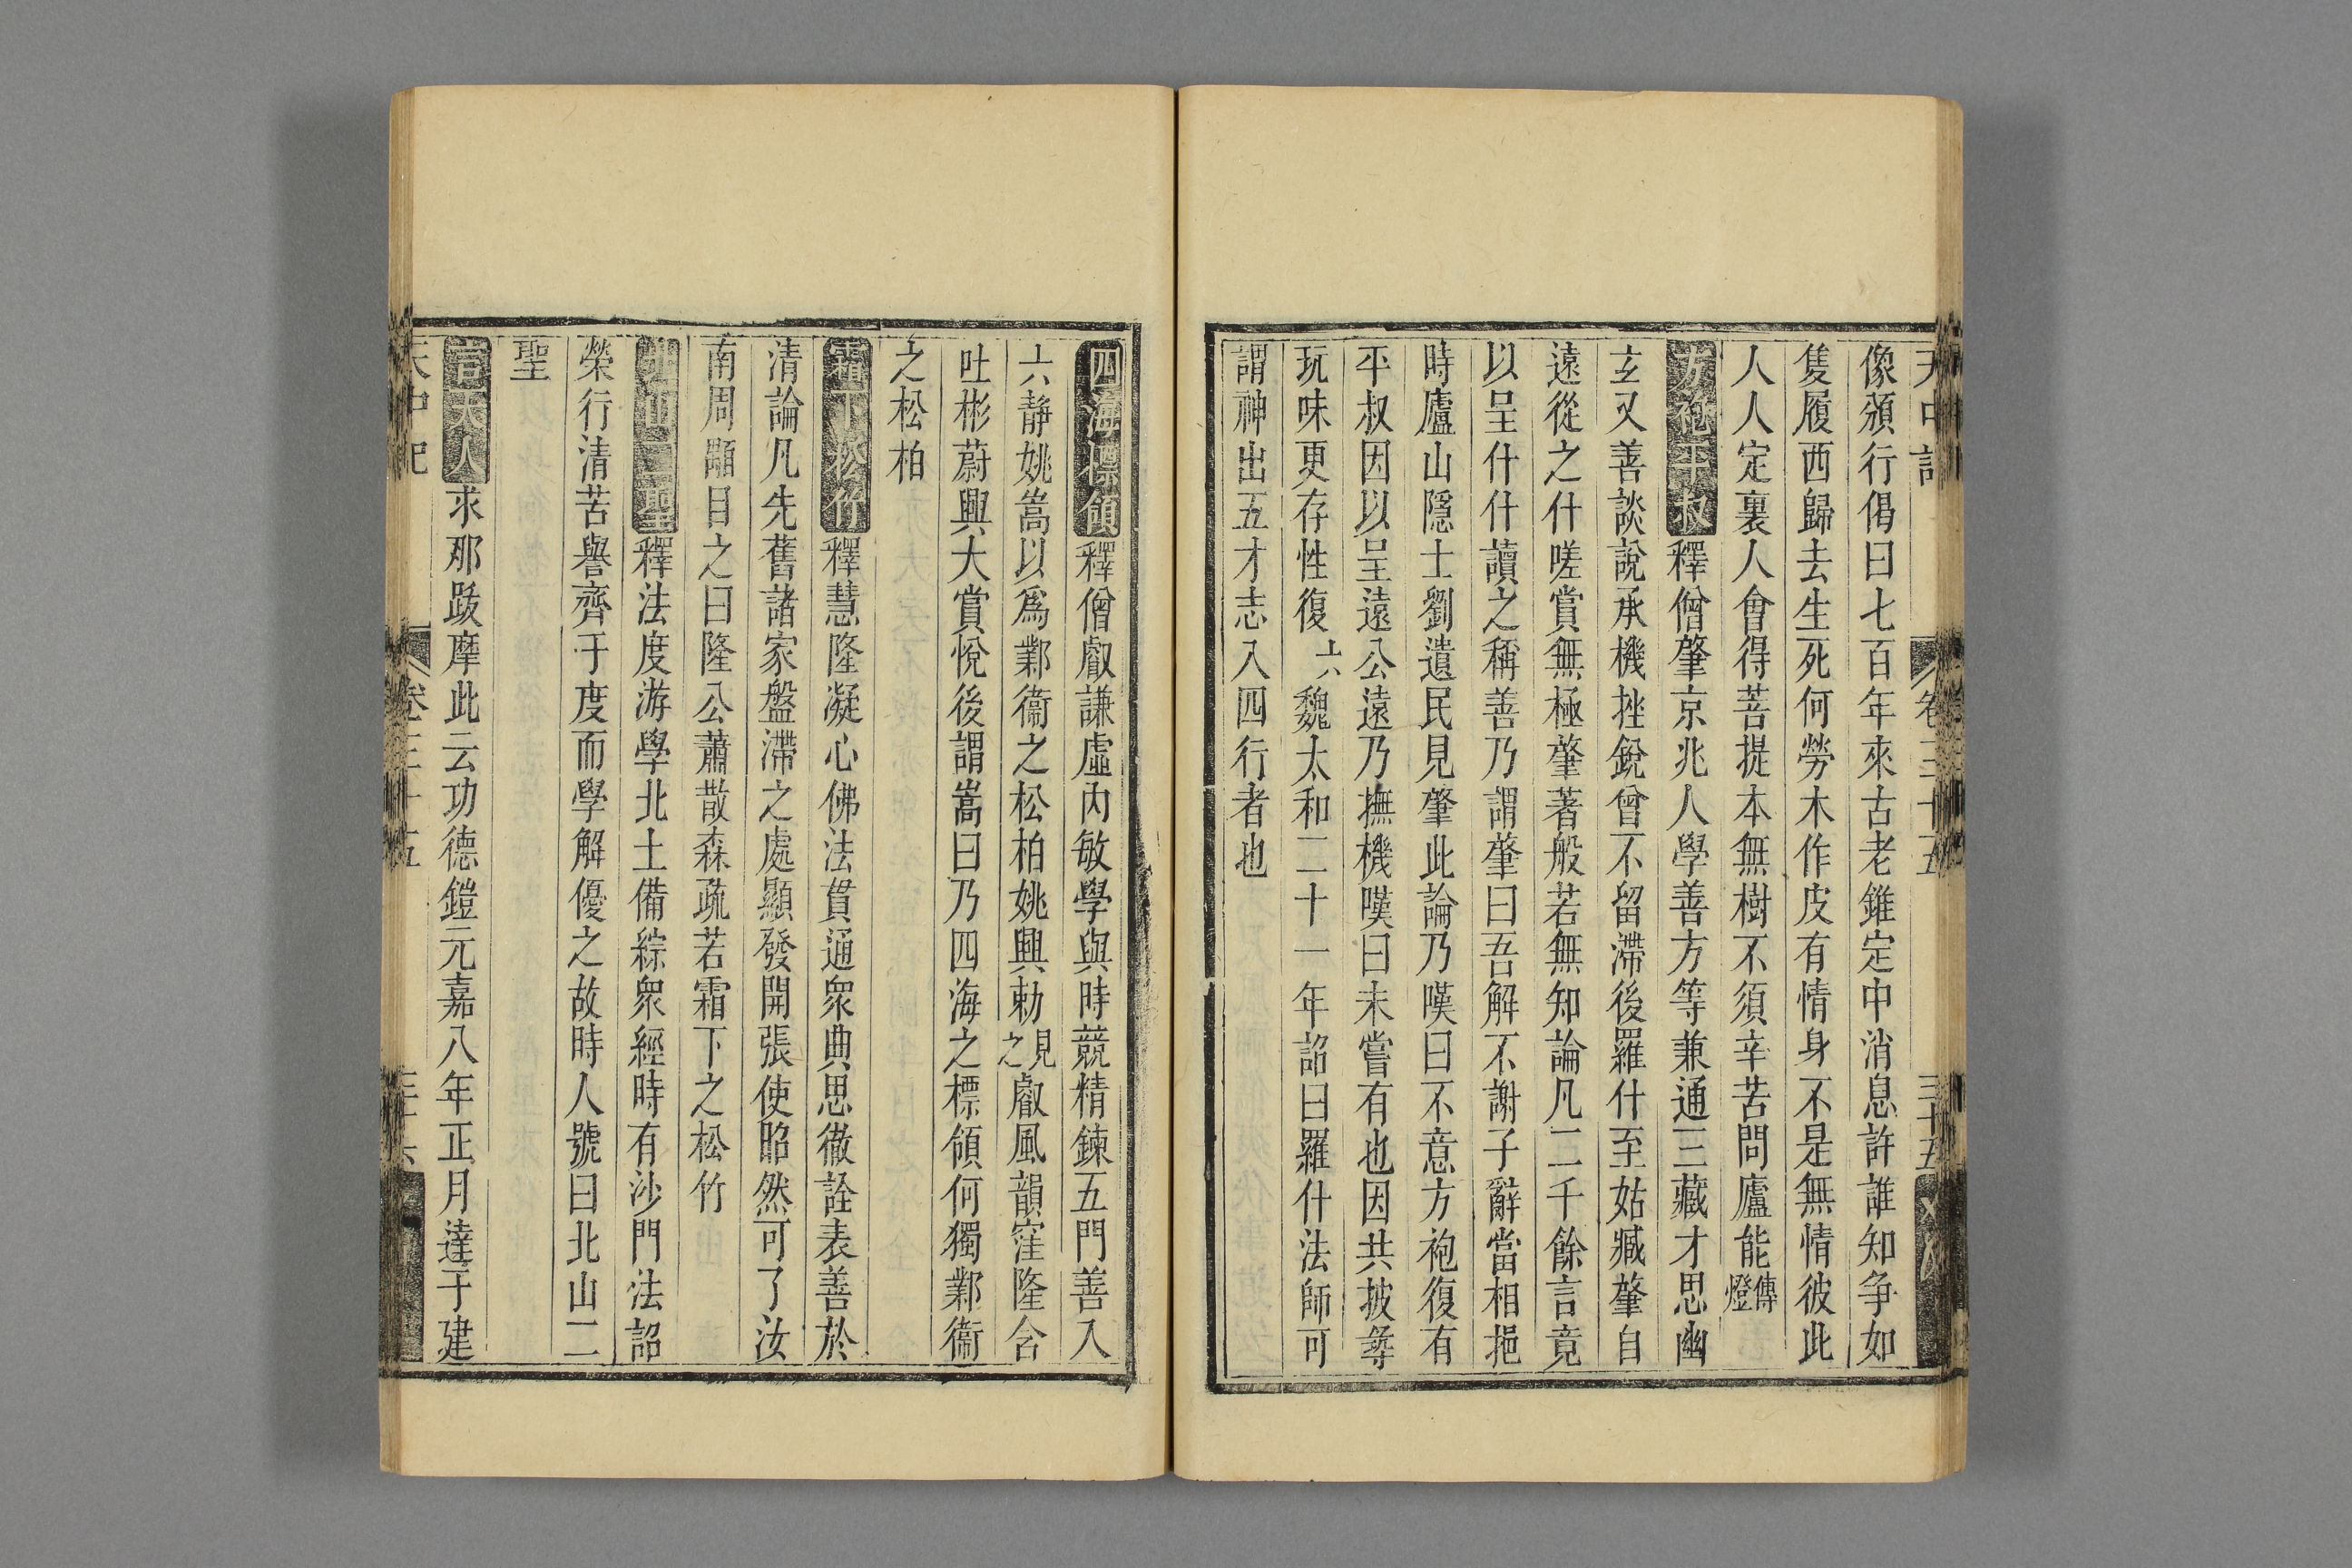 天中記 卷三十五 三十五
像頒行偈曰七百年來古老錐定中消息許誰知争如
隻履西歸去生死何勞木作皮有情身不是無情彼此
人人定裏人會得菩提本無樹不須辛苦問廬能傳燈
方袍平叔釋僧肇京兆人學善方等兼通三藏才思幽
玄又善談說承機挫銳曾不留滯後羅什至姑臧肇自
遠從之什嗟賞無極肇著般若無知論凡二千餘言竟
以呈什什讀之稱善乃謂肇曰吾解不謝子辭當相挹
時廬山隱士劉遺民見肇此論乃嘆曰不意方袍復有
平叔因以呈遠公遠乃撫機嘆曰未嘗有也因共披尋
玩味更存性復六魏太和二十一年詔曰羅什法師可
謂神出五才志入四行者也
四海標領釋僧叡謙虛内敏學與時競精鍊五門善入
六静姚嵩以爲鄴衞之松柏姚興勅見之叡風韻窪隆含
吐彬蔚興大賞悅後謂嵩曰乃四海之標領何獨鄴衞
之松柏
霜下松竹釋慧隆凝心佛法貫通衆典思徹詮表善於
清論凡先舊諸家盤滯之處顯發開張使昭然可了汝
南周顒目之曰隆公蕭散森疏若霜下之松竹
北山二聖釋法度游學北土備綜衆經時有沙門法詔
榮行清苦譽齊于度而學解優之故時人號曰北山二
聖
言天人求那跋摩此云功德鎧元嘉八年正月達于建
天中記 卷三十五 三十六